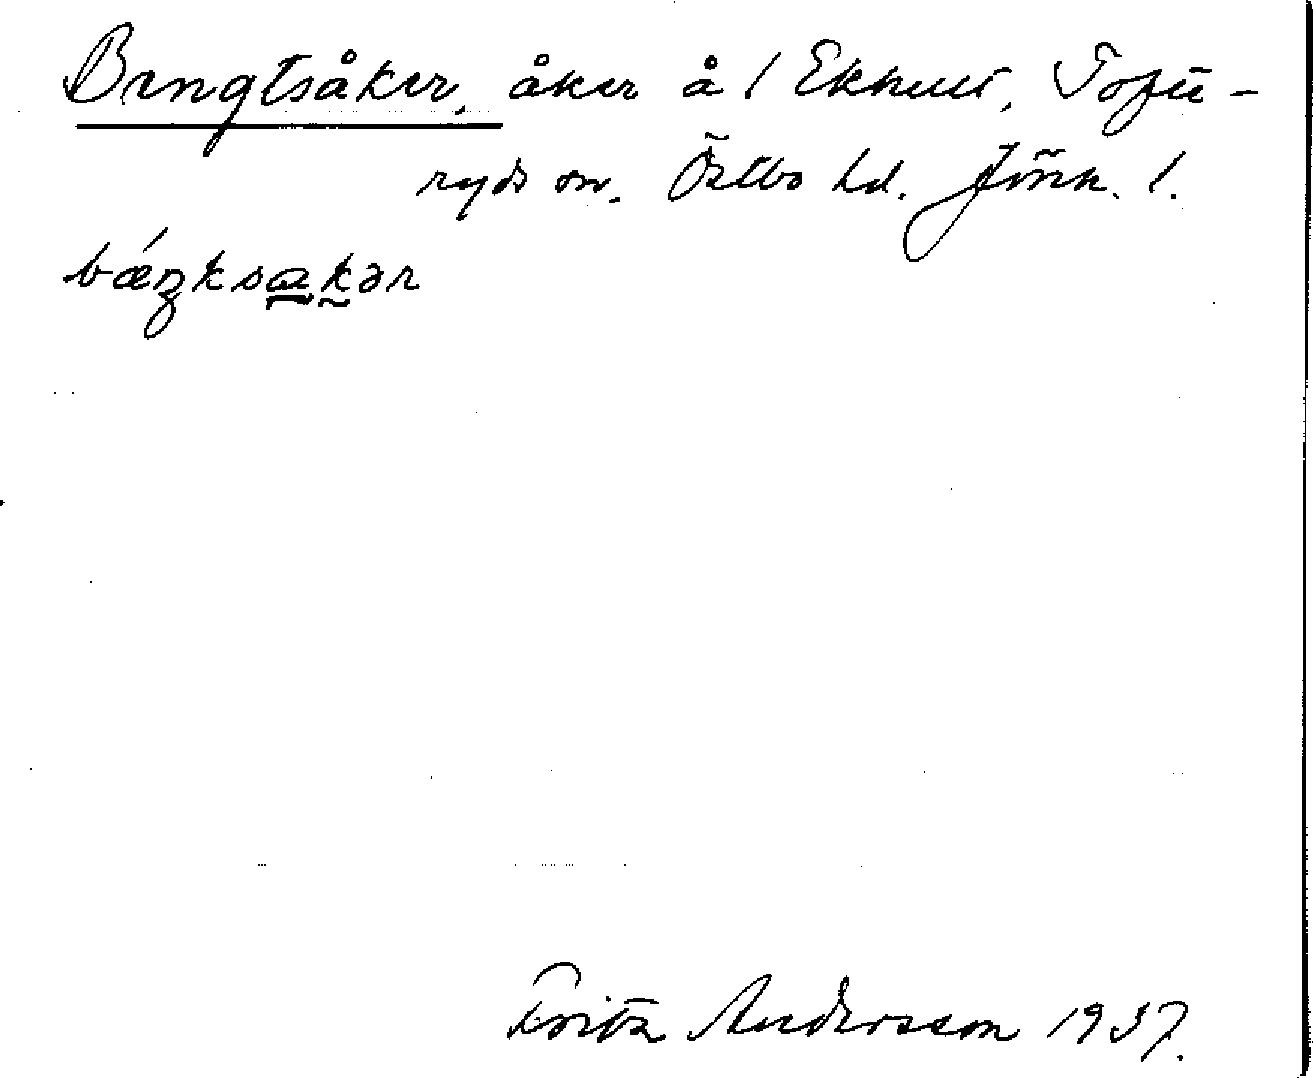 Bengtsåker, åker å / Ekhult, Tofte-
ryds sn. Östbo hd. Jönk. l.
bǽŋksakər
Fritz Andersson 1937.